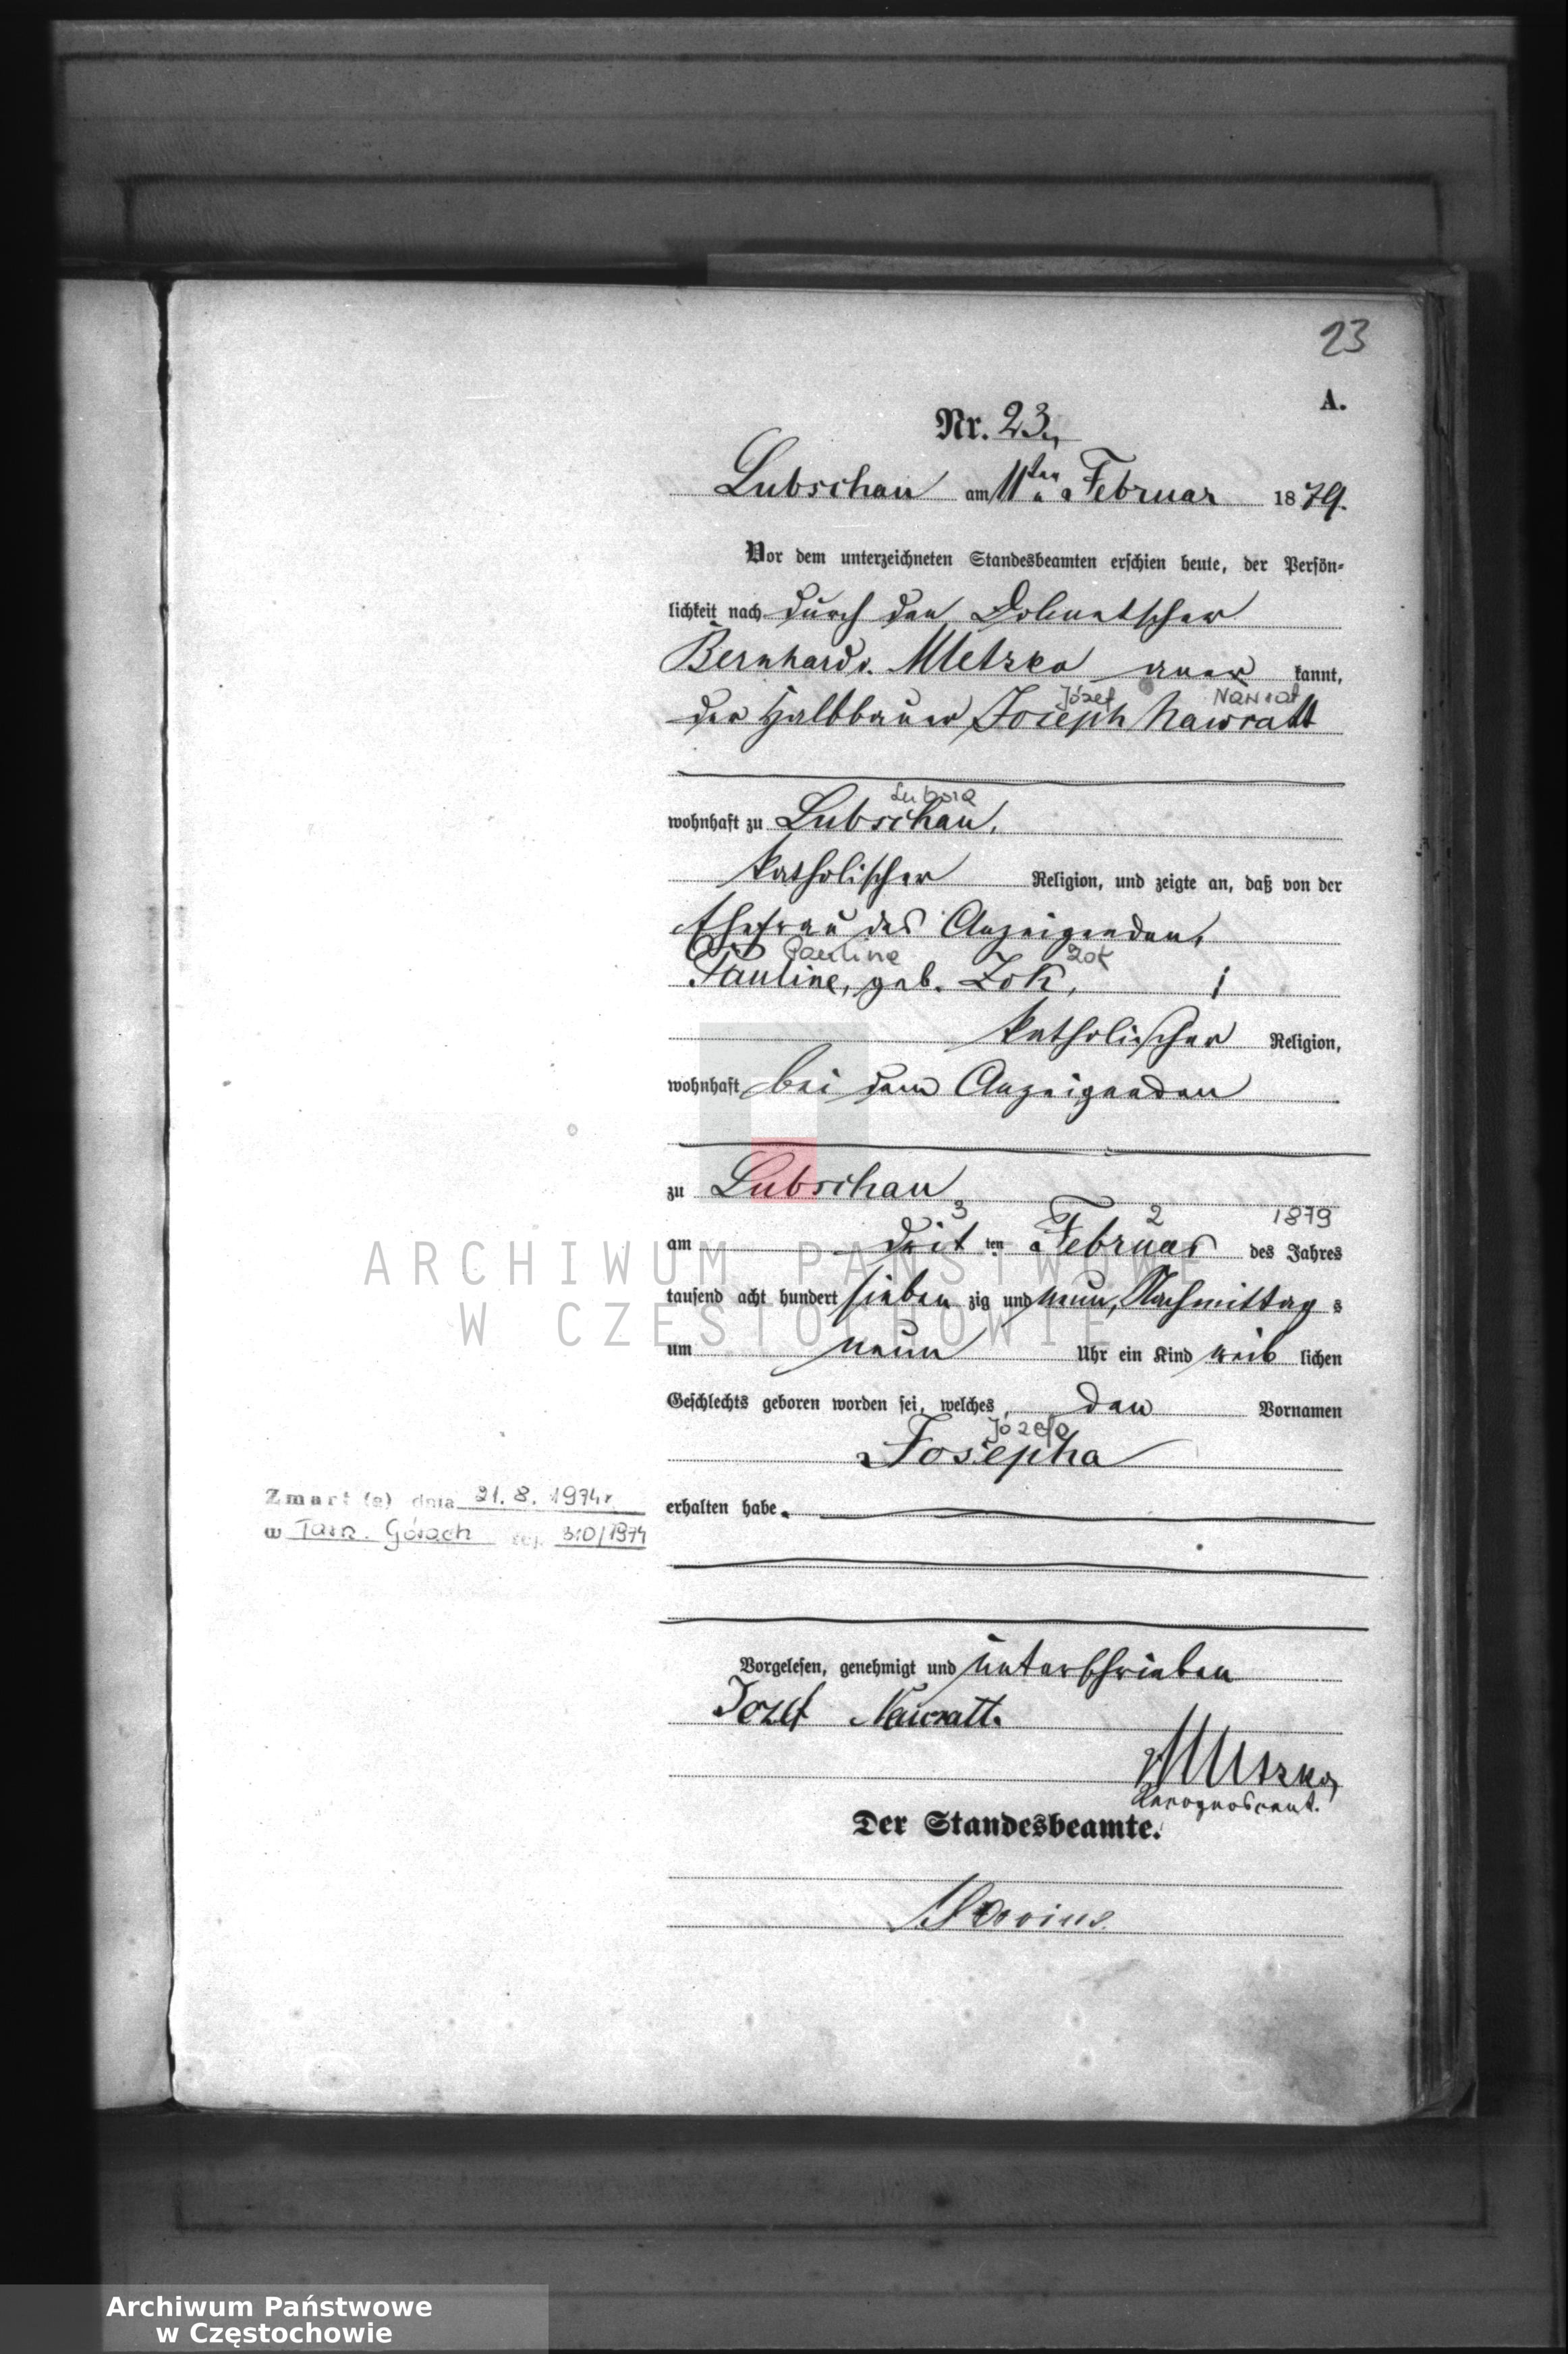 23
A.
Nr. 23.
Lubschau am 11ten Februar 1879.
Vor dem unterzeichneten Standesbeamten erschien heute, der Persön-
lichkeit nach durch den Dolmetscher
Bernhard v. Mletzko aner kannt,
Józef Nawrat
der Halbbauer Joseph Nawratt
Lubsza
wohnhaft zu Lubschau,
katholischer Religion, und zeigte an, daß von der
Ehefrau des Anzeigenden,
Pauline Zok
Pauline, geb. Zok,
katholischer Religion,
wohnhaft bei dem Anzeigenden
zu Lubschau
3 2 1879
am dritten Februar des Jahres
tausend acht hundert sieben zig und neun, Nachmittag s
um neun Uhr ein Kind weib lichen
Geschlechts geboren worden sei, welches den Vornamen
Józefa
Josepha
erhalten habe.
Zmarł (a) dnia 21. 8. 1974 r.
w Tarn. Górach 310/1974
Vorgelesen, genehmigt und unterschrieben
Jozef Nawratt.
v. Mletzko,
Recognoscent.
Der Standesbeamte.
ARCHIWUM PAŃSTWOWE
W CZĘSTOCHOWIE
Archiwum Państwowe
w Częstochowie